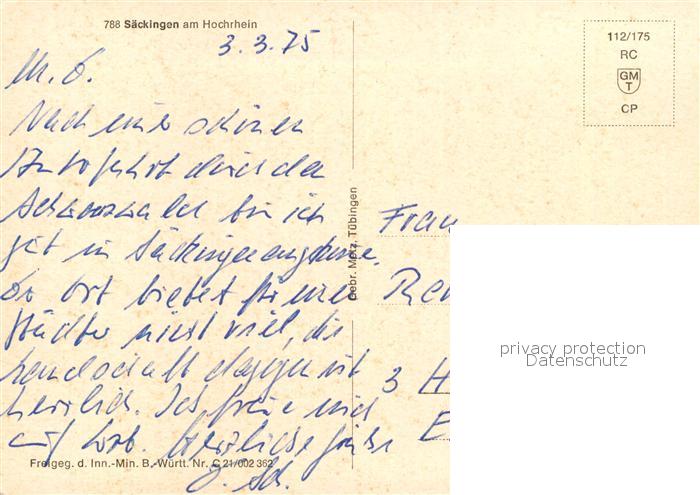 788 Säckingen am Hochrhein
3.3.75
M. G.
Nach einer schönen
Autofahrt durch den
Schwarzwald bin ich
gut in Säckingen angekomm.
Der Ort bietet für einen
Städter nicht viel, die
Landschaft dagegen ist
herrlich. Ich freue mich
auf Herzliche Grüße
Sch.
Freigeg. d. Inn.-Min. B.-Württ. Nr. C 21/002 362
Gebr. Metz, Tübingen
112/175
RC
GM
T
CP
Frau
3 H
E
privacy protection
Datenschutz